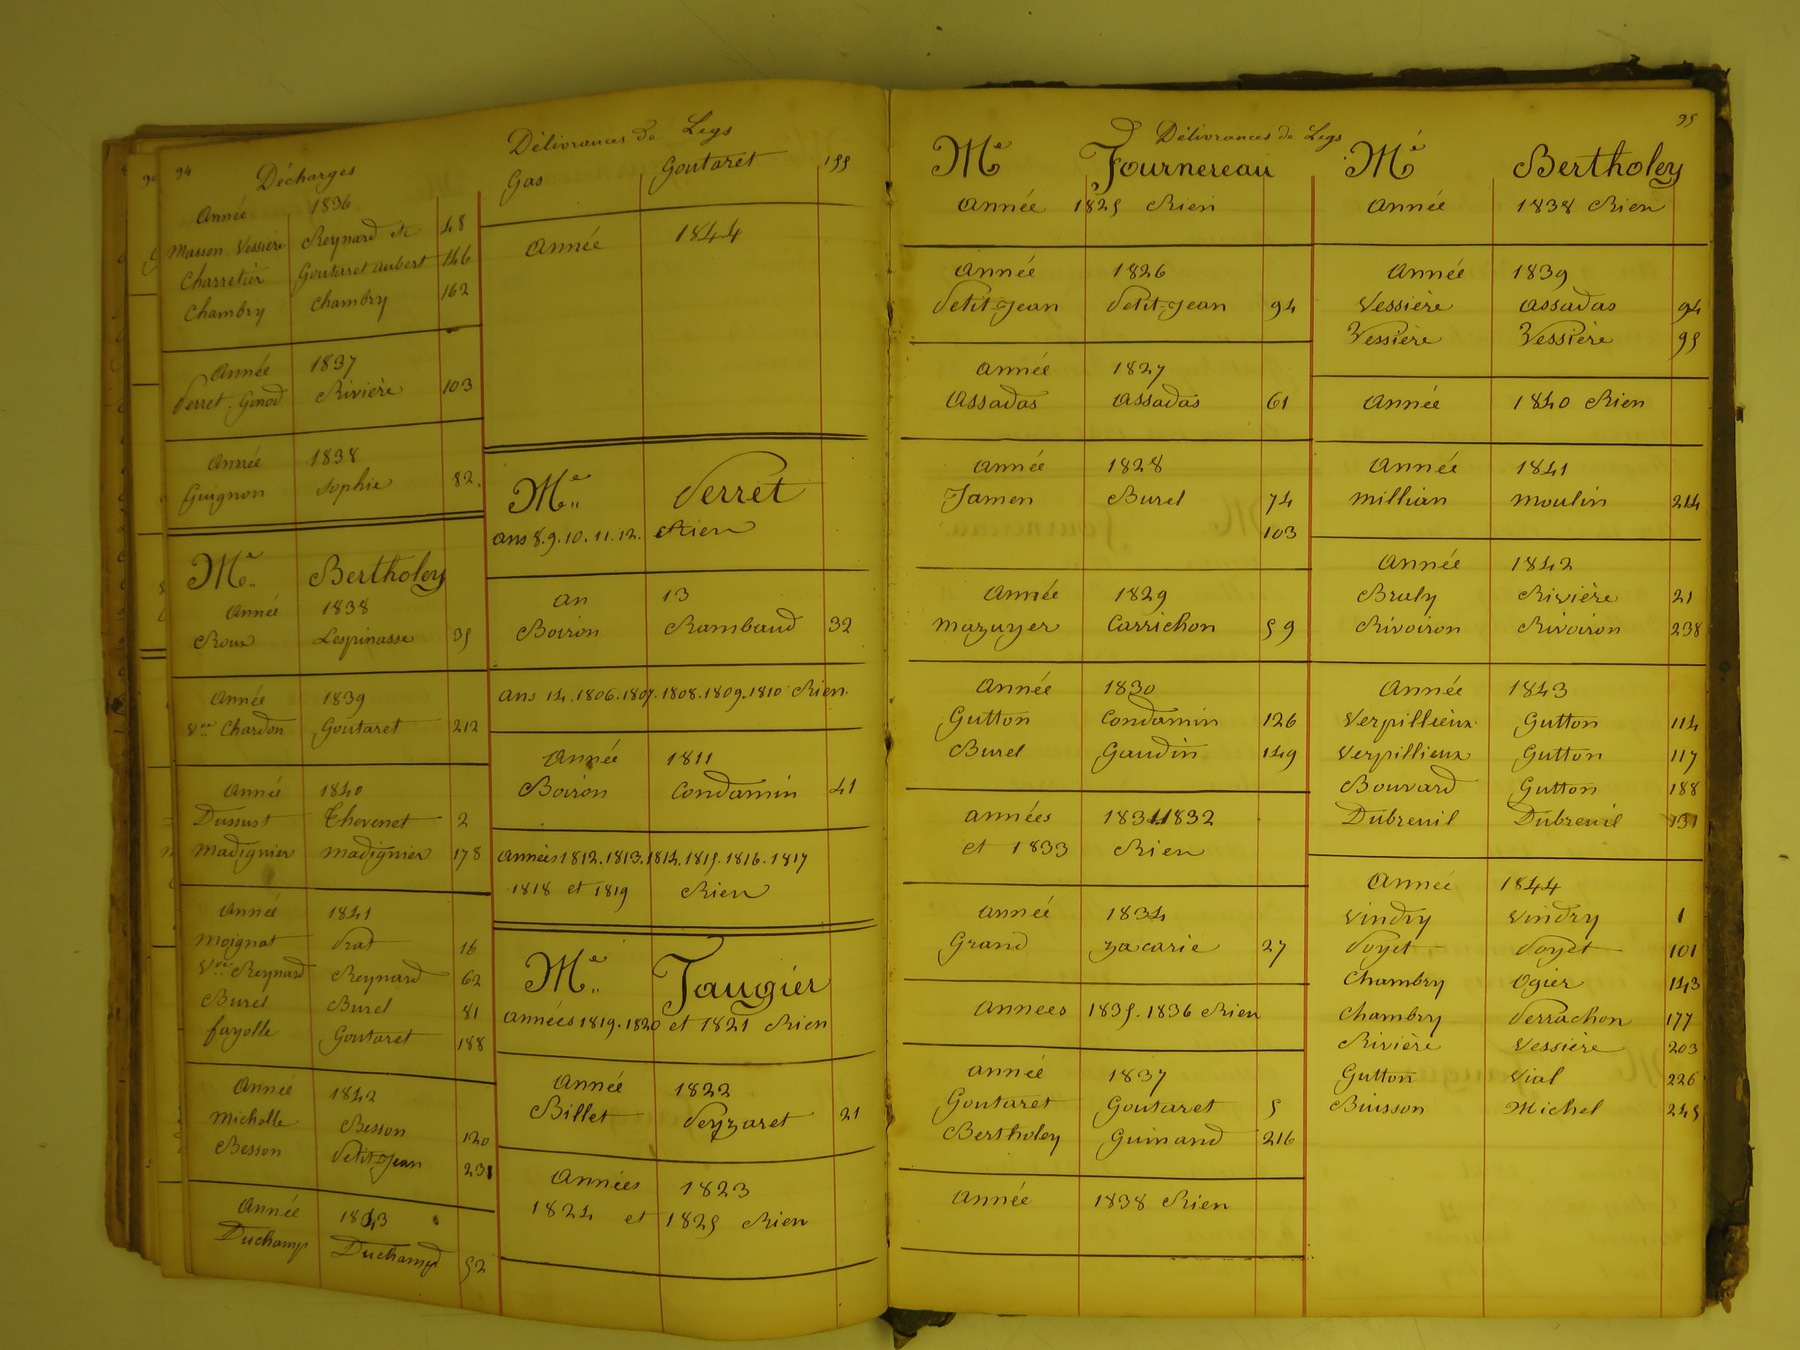 94
Décharges
Année 1836
Masson Vessière Reynard etc 48
Charretier Goutaret aubert 146
Chambry Chambry 162
Année 1837
Perret-Genod Rivière 103
Année 1838
Guignon Sophie 82.
Me Bertholey
Année 1838
Roux Lespinasse 35
Année 1839
Vve Chardon Goutaret 212
Année 1840
Dussurt Thevenet 2
Madignier Madignier 178
Année 1841
Moignat Prat 16
Vve Reynard Reynard 62
Burel Burel 81
fayolle Goutaret 188
Année 1842
Micholle Besson 120
Besson Petit-Jean 231
Année 1843
Duchamp Duchamp 52
Délivrances de Legs
Gas Goutaret 155
Année 1844
Me Perret
ans 8.9.10.11.12. Rien
An 13
Boiron Rambaud 32
Ans 14.1806.1807.1808.1809.1810 Rien.
Année 1811
Boiron Condamin 41
Années 1812.1813.1814.1815.1816.1817
1818 et 1819 Rien
Me Jaugier
années 1819.1820 et 1821 Rien
Année 1822
Billet Peyzaret 21
Années 1823
1824 et 1825 Rien
95
Délivrances de Legs
Me Fournereau
Année 1825 Rien
Année 1826
Petit-Jean Petit-Jean 94
Année 1827
Assadas Assadas 61
Année 1828
Jamen Burel 74
103
Année 1829
Mazuyer Carrichon 59
Année 1830
Gutton Condamin 126
Burel Gaudin 149
années 1831 1832
et 1833 Rien
Année 1834
Grand Zacarie 27
Annees 1835.1836 Rien
année 1837
Goutaret Goutaret 5
Bertholey Guinand 216
Année 1838 Rien
Me Bertholey
Année 1838 Rien
Année 1839
Vessière Assadas 94
Vessière Vessière 95
Année 1840 Rien
Année 1841
Millian Moulin 214
Année 1842
Braly Rivière 21
Rivoiron Rivoiron 238
Année 1843
Verpillieux Gutton 114
Verpillieux Gutton 117
Bouvard Gutton 188
Dubreuil Dubreuil 131
Année 1844
Vindry Vindry 1
Poyet Poyet 101
Chambry Ogier 143
Chambry Perrachon 177
Rivière Vessière 203
Gutton Vial 226
Buisson Michel 245